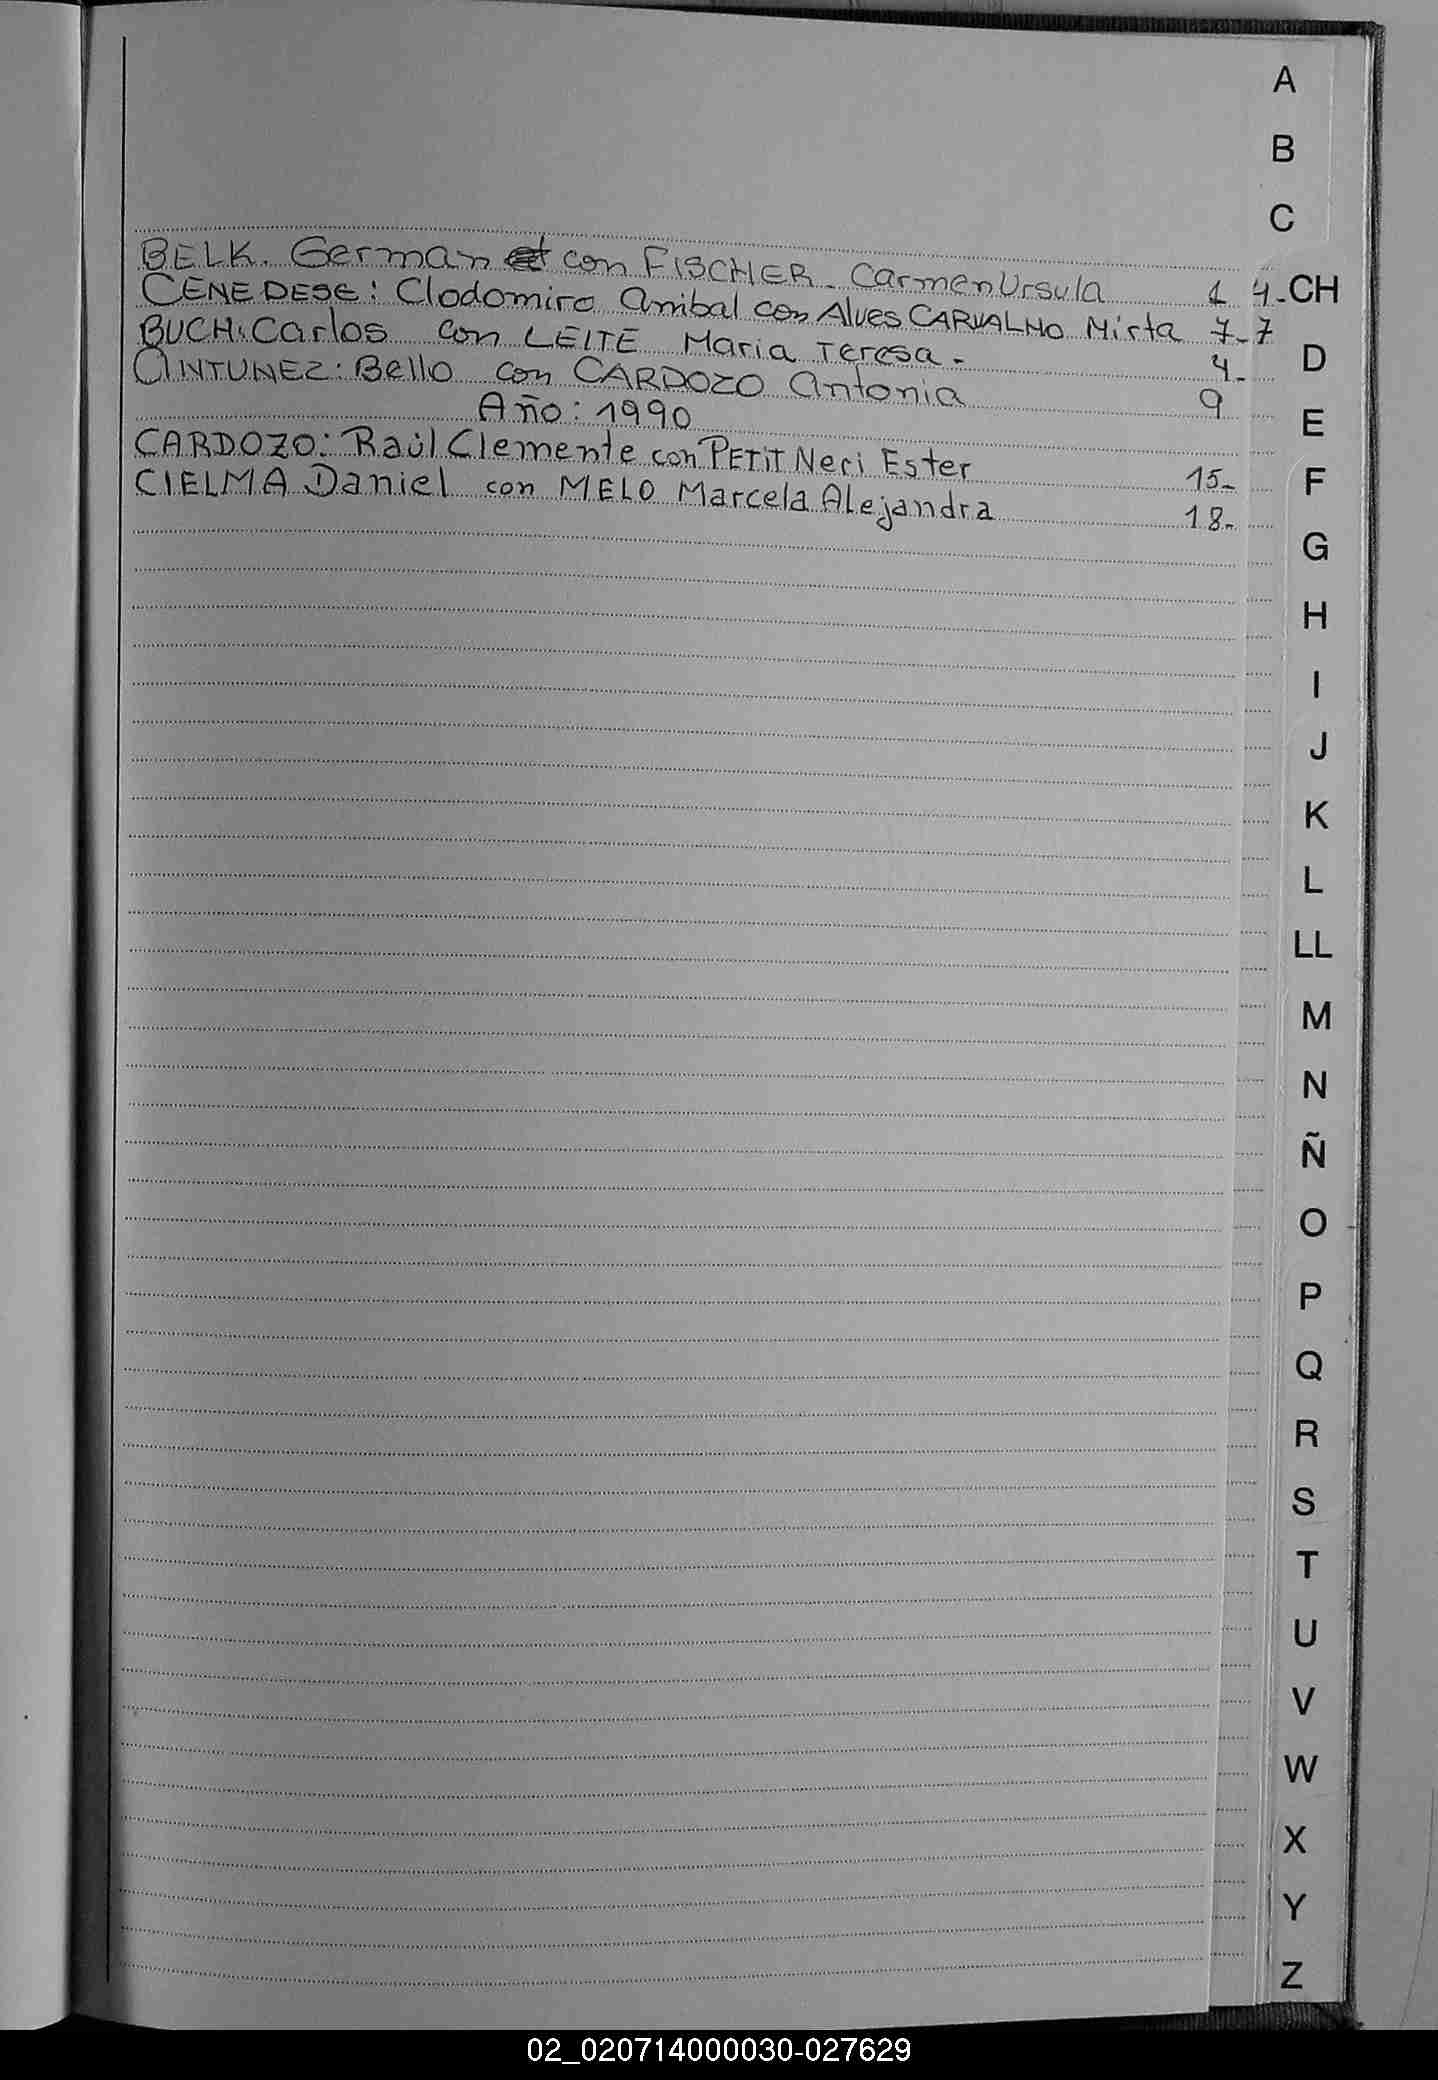 A
B
C
BELK. German con FISCHER. Carmen Ursula 1 4.
CH
CENEDESE: Clodomiro Anibal con Alves CARVALHO Mirta 7-7
BUCH: Carlos con LEITE Maria Teresa. 4.
D
ANTUNEZ: Bello con CARDOZO Antonia 9
Año: 1990
E
CARDOZO: Raúl Clemente con PETIT Neri Ester 15-
F
CIELMA Daniel con MELO Marcela Alejandra 18.
G
H
I
J
K
L
LL
M
N
Ñ
O
P
Q
R
S
T
U
V
W
X
Y
Z
02_020714000030-027629